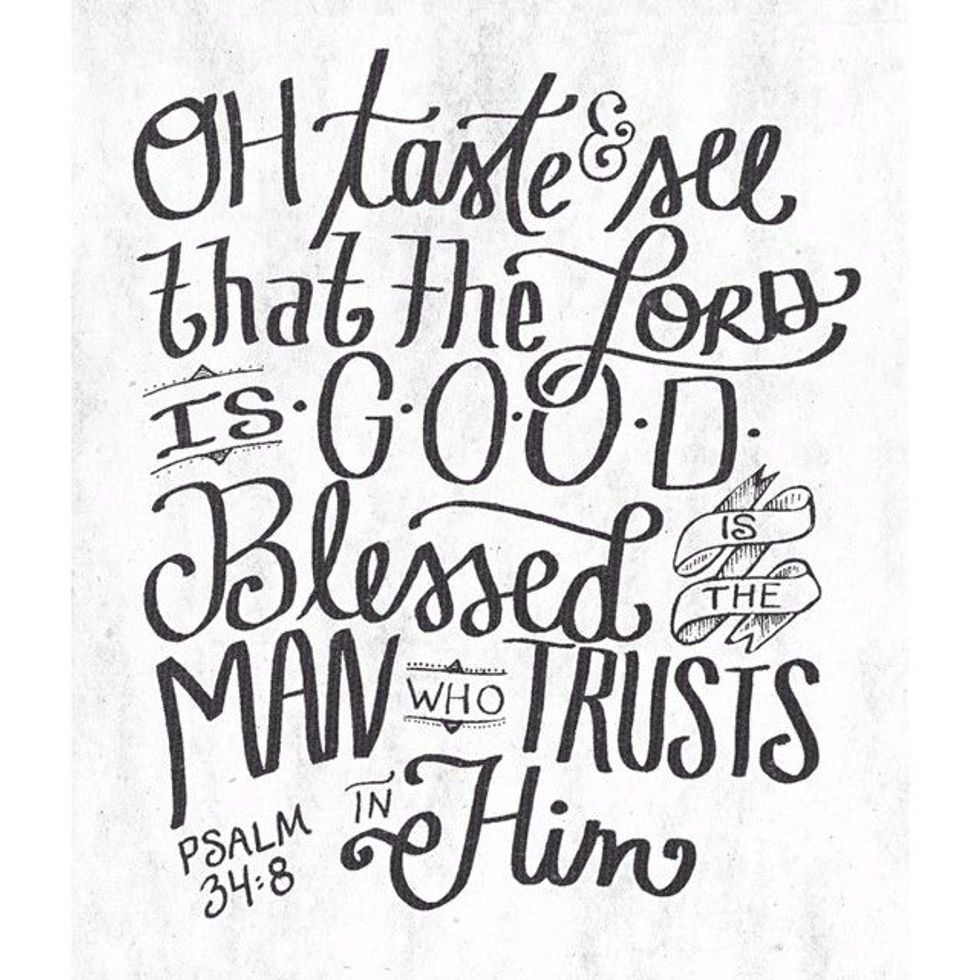 OH taste & see
that the LORD
IS · G · O · O · D ·
Blessed IS THE
MAN WHO TRUSTS
IN Him
PSALM
34:8